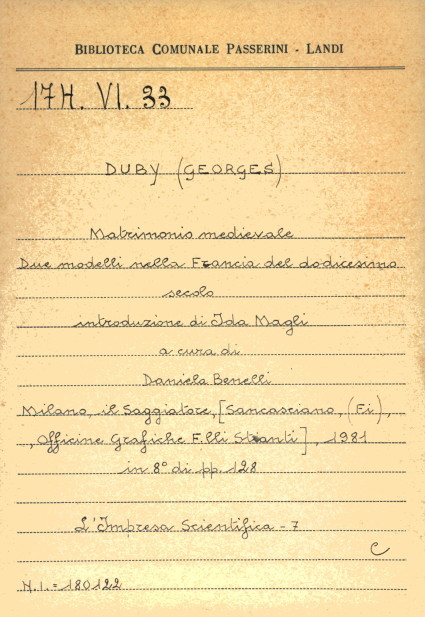 BIBLIOTECA COMUNALE PASSERINI - LANDI
17H. VI. 33
DUBY (GEORGES)
Matrimonio medievale
Due modelli nella Francia del dodicesimo
secolo
introduzione di Ida Magli
a cura di
Daniela Benelli
Milano, il Saggiatore, [Sancasciano, (Fi),
, Officine Grafiche F.lli Stianti], 1981
in 8° di pp. 128
L'Impresa Scientifica - 7
C
N.I. = 180122